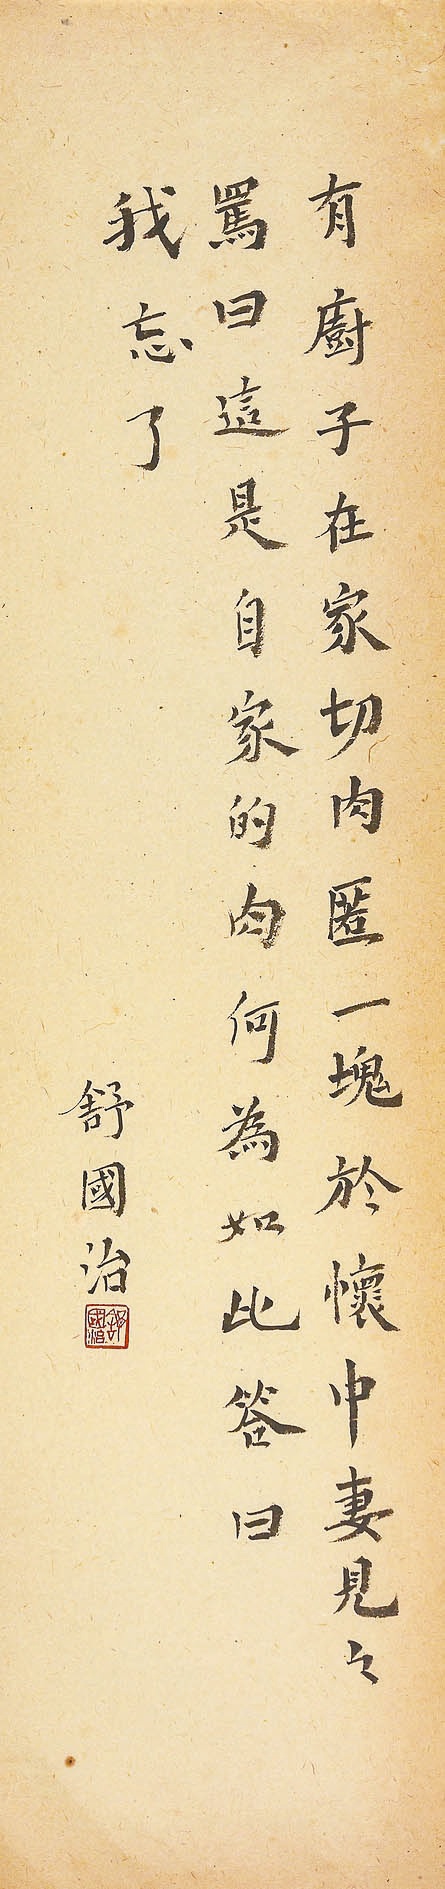 有廚子在家切肉匿一塊於懷中妻見之
罵曰這是自家的肉何為如此答曰
我忘了
舒國治
舒國治